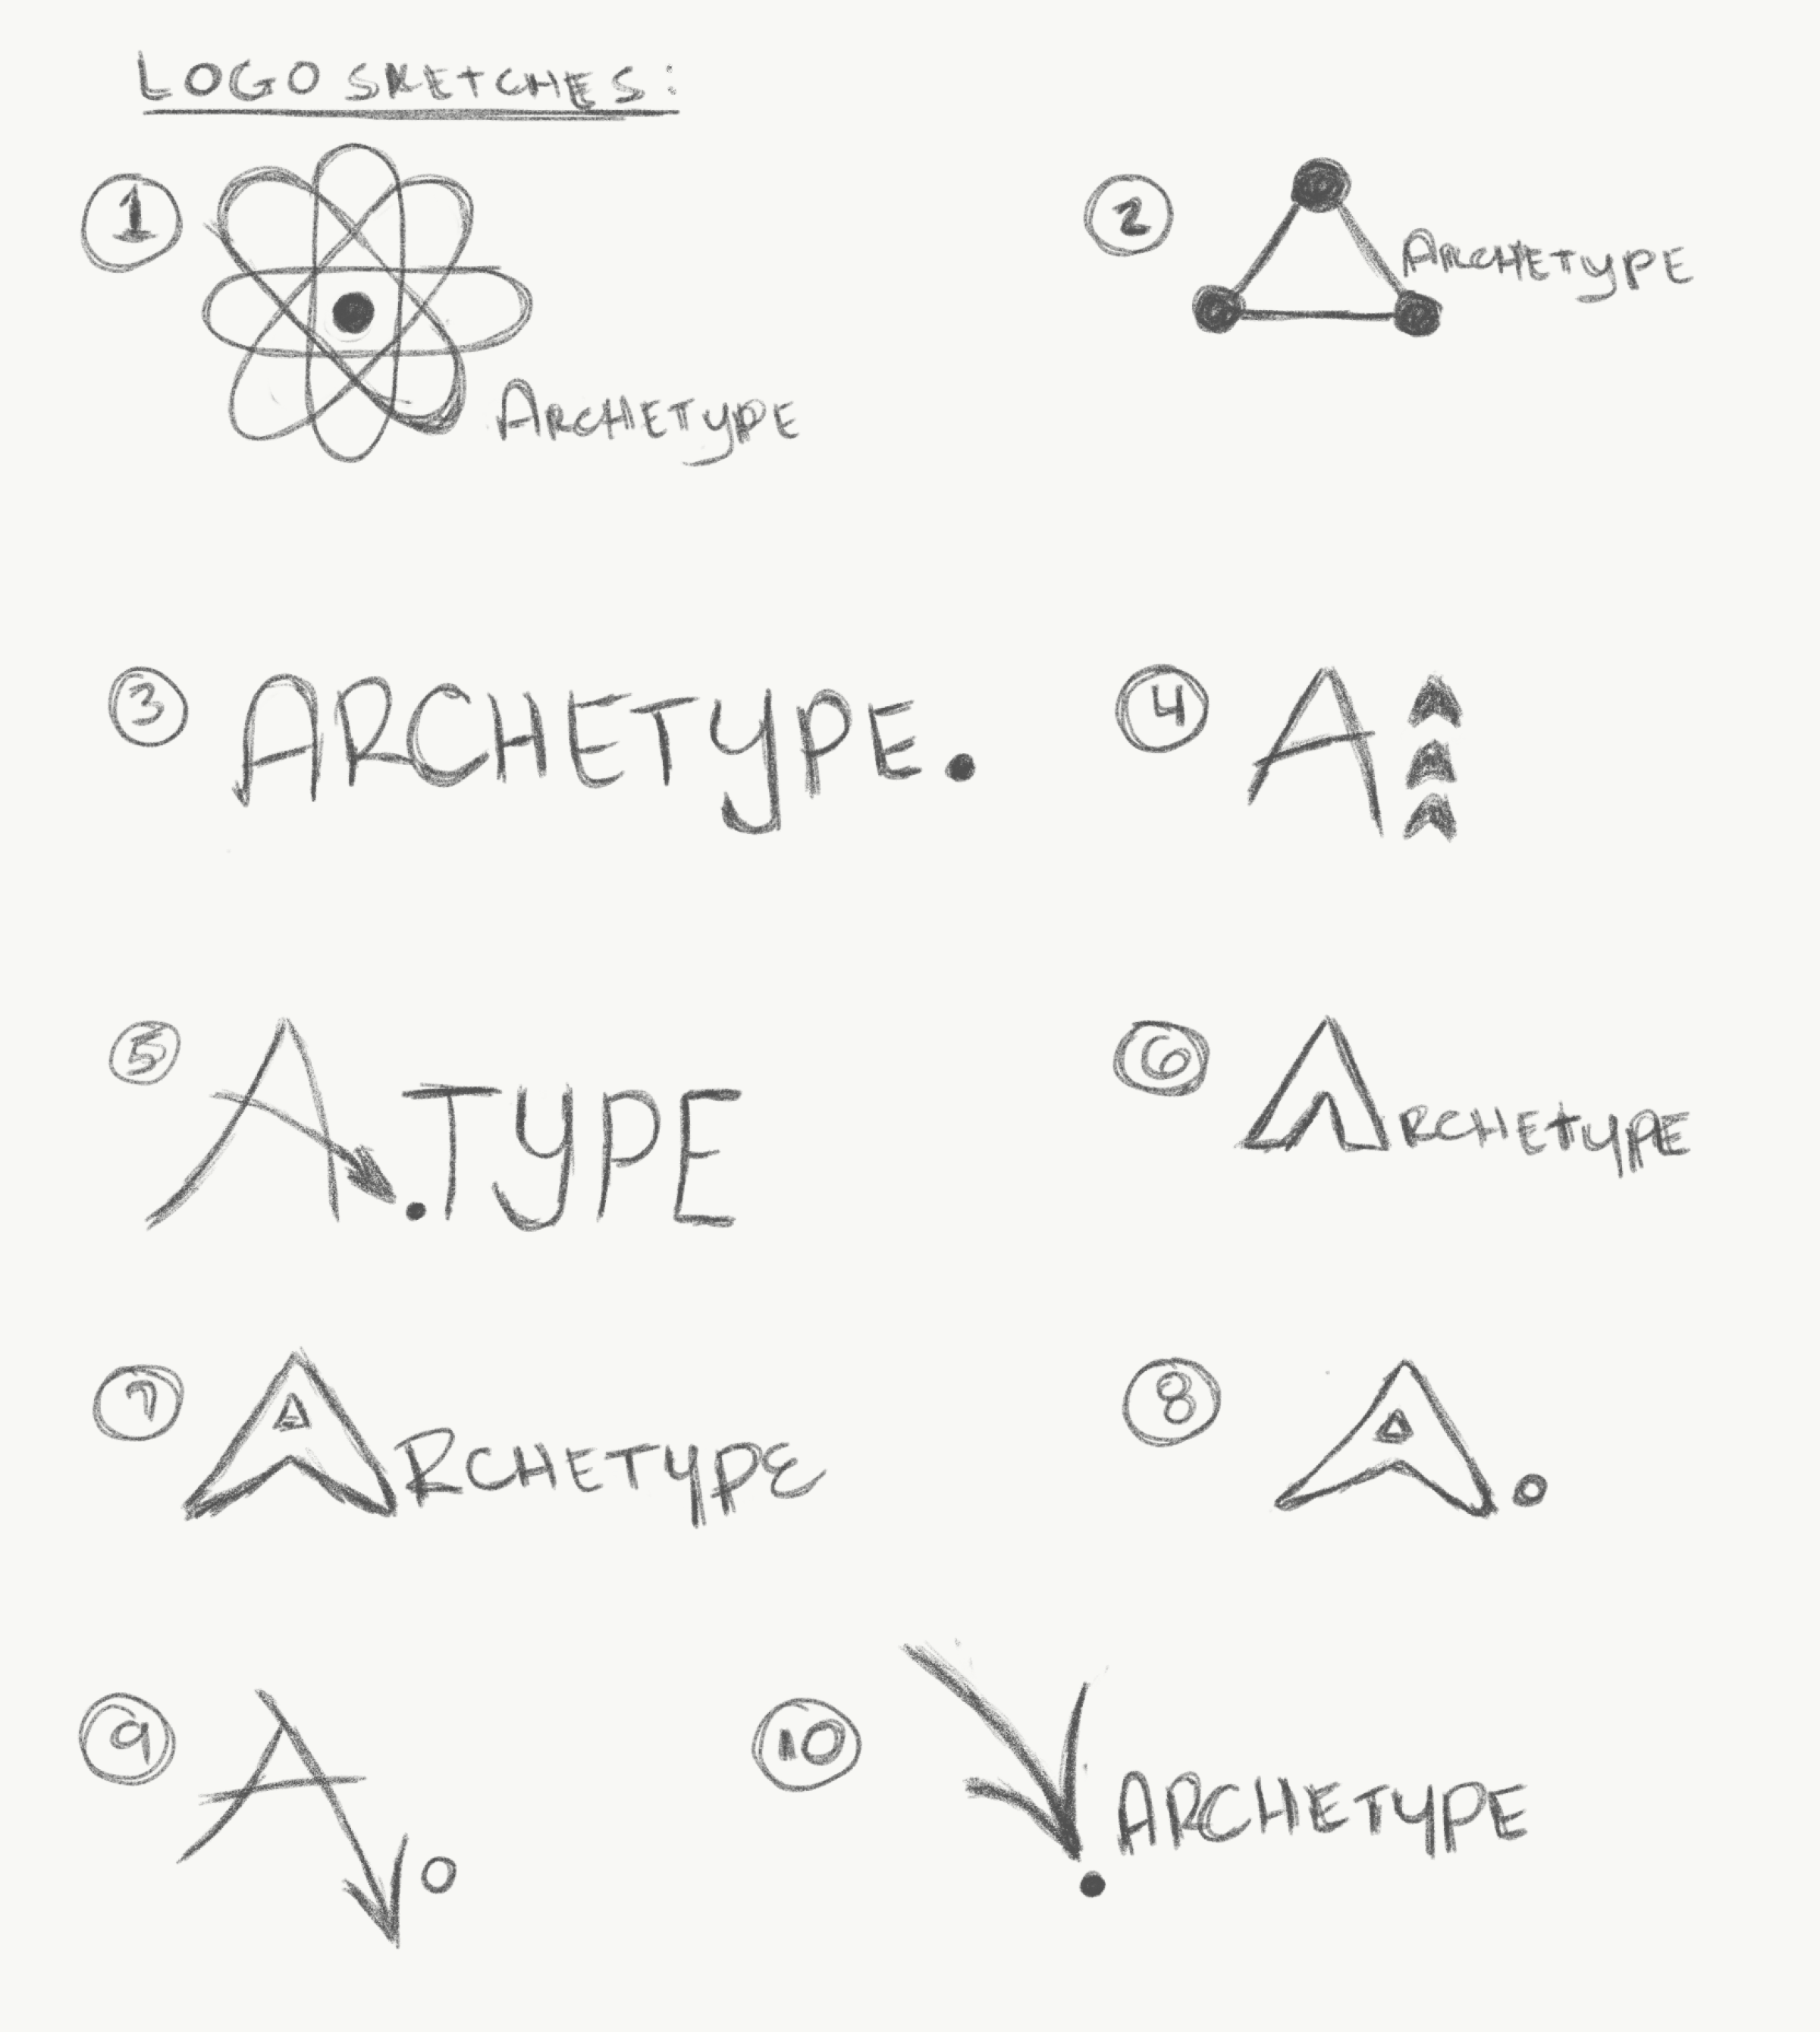 LOGO SKETCHES:
1
ARCHETYPE
2
ARCHETYPE
3
ARCHETYPE.
4
A
5
A.TYPE
6
ARCHETYPE
7
ARCHETYPE
8
A.
9
A
10
ARCHETYPE